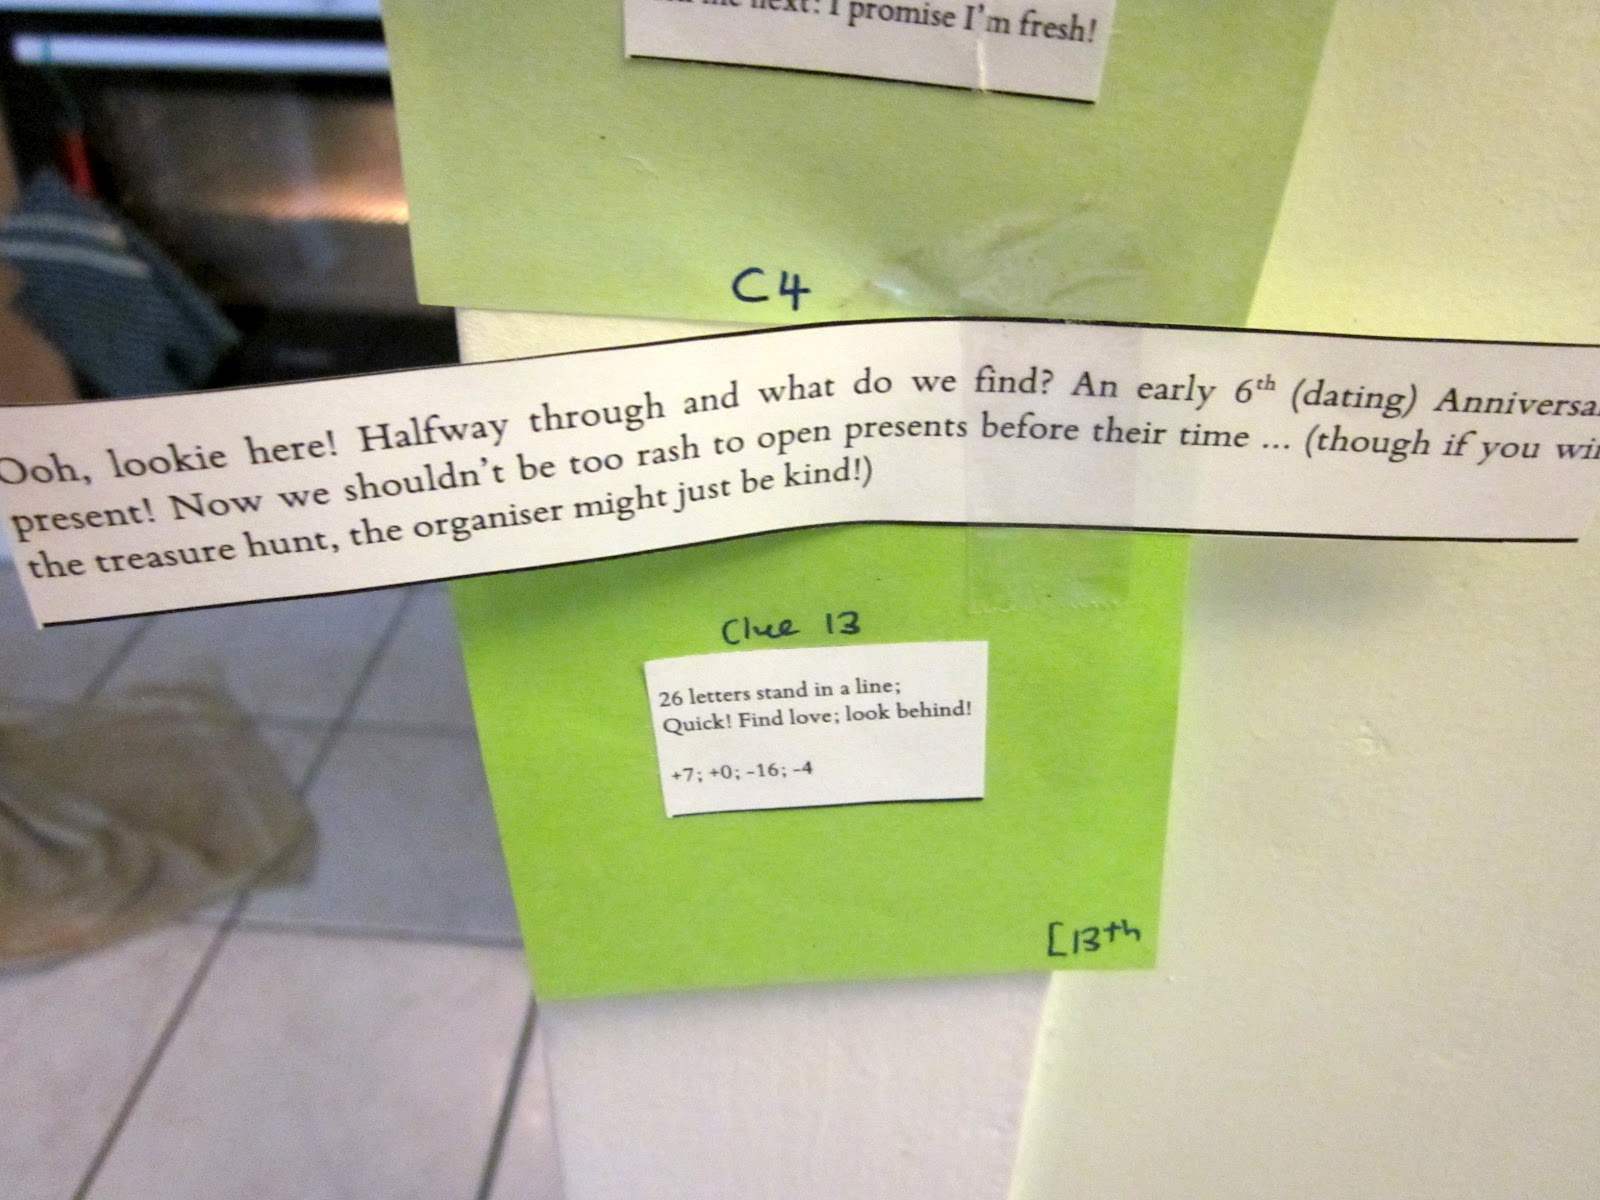 next! I promise I'm fresh!
C4
Ooh, lookie here! Halfway through and what do we find? An early 6th (dating)
present! Now we shouldn't be too rash to open presents before their time ... (though if you
the treasure hunt, the organiser might just be kind!)
Clue 13
26 letters stand in a line;
Quick! Find love; look behind!
+7; +0; -16; -4
[13th